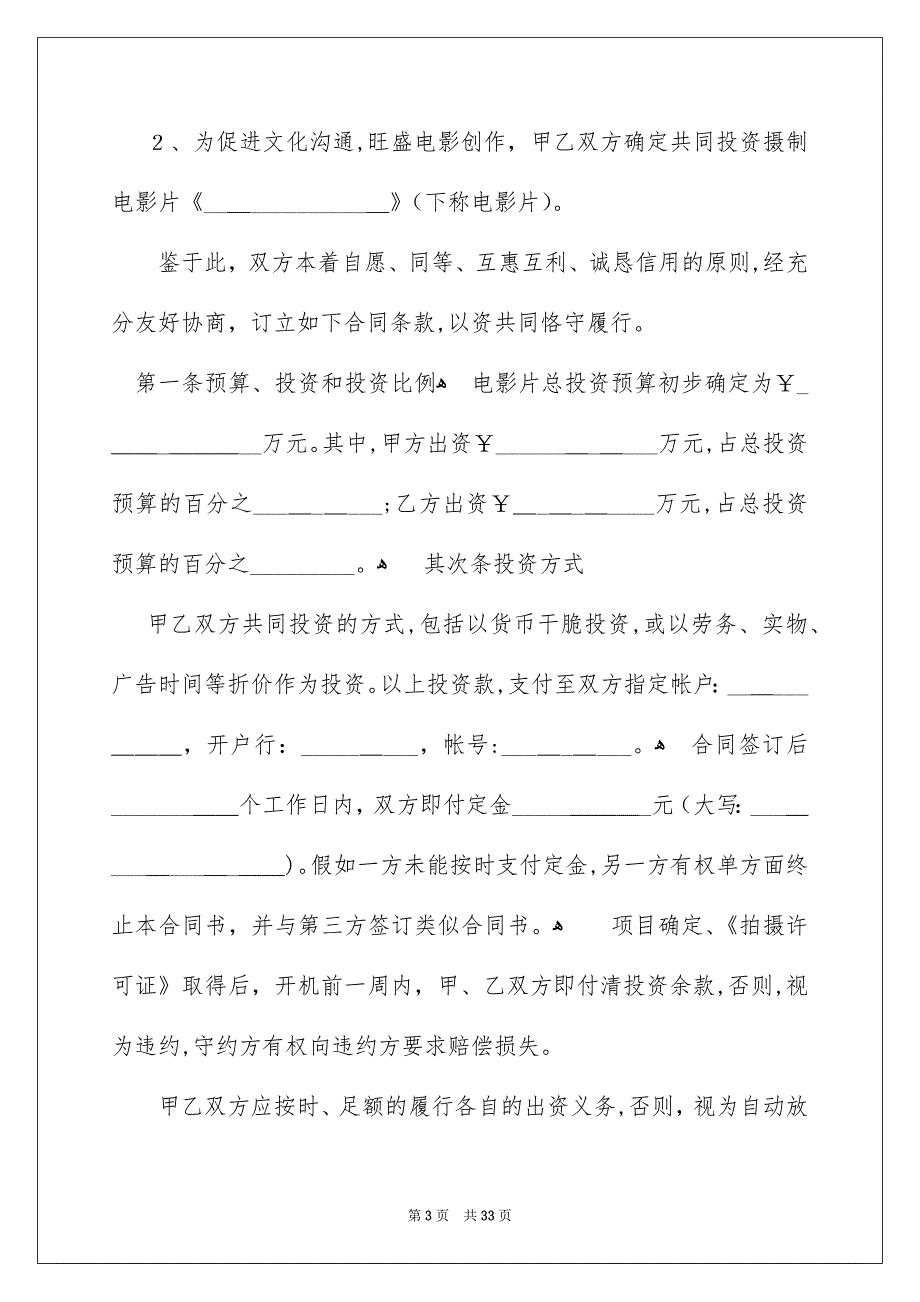 2、为促进文化沟通,旺盛电影创作，甲乙双方确定共同投资摄制
电影片《________________》(下称电影片)。
鉴于此，双方本着自愿、同等、互惠互利、诚恳信用的原则,经充
分友好协商，订立如下合同条款,以资共同恪守履行。
第一条预算、投资和投资比例ﻫ 电影片总投资预算初步确定为￥_
_____________万元。其中,甲方出资￥______________万元,占总投资
预算的百分之___________;乙方出资￥____________万元,占总投资
预算的百分之_________。ﻫ 其次条投资方式
甲乙双方共同投资的方式,包括以货币干脆投资,或以劳务、实物、
广告时间等折价作为投资。以上投资款,支付至双方指定帐户:_______
______，开户行：__________，帐号:___________。ﻫ 合同签订后
___________个工作日内，双方即付定金____________元(大写:_____
_______________)。假如一方未能按时支付定金,另一方有权单方面终
止本合同书，并与第三方签订类似合同书。ﻫ 项目确定、《拍摄许
可证》取得后，开机前一周内，甲、乙双方即付清投资余款,否则,视
为违约,守约方有权向违约方要求赔偿损失。
甲乙双方应按时、足额的履行各自的出资义务,否则，视为自动放
第 3 页 共 33 页